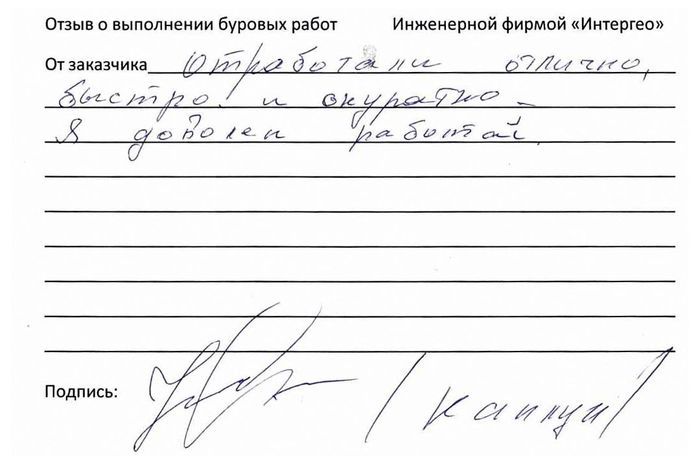 Отзыв о выполнении буровых работ Инженерной фирмой «Интергео»
От заказчика Отработали отлично,
быстро и окуратно
Я доволен работай.
Подпись: